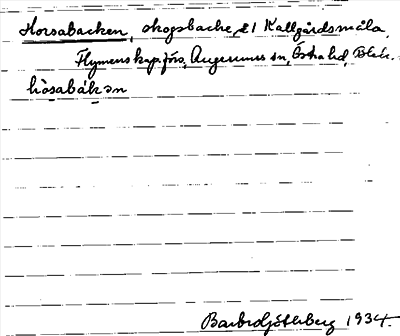 Horsabacken, skogsbacke, £1 Källgårdsmåla,
Flymens kap.förs, Augerums sn, Östra hd, Blek.
hòsabákən
Barbro Söderberg 1934.